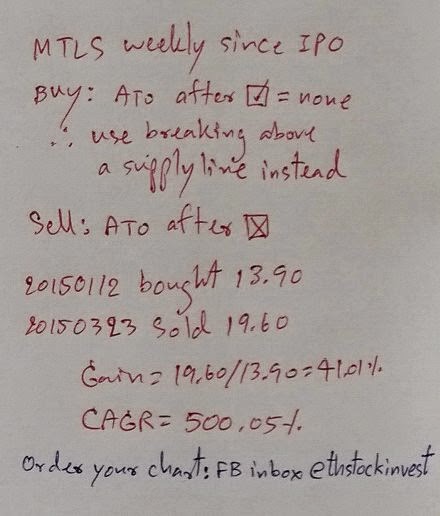 MTLS weekly since IPO
Buy: ATO after ☑ = none
∴ use breaking above
a supply line instead
Sell: ATO after ☒
20150112 bought 13.90
20150323 Sold 19.60
Gain = 19.60/13.90 = 41.01%
CAGR = 500.05%
Order your chart: FB inbox @thstockinvest